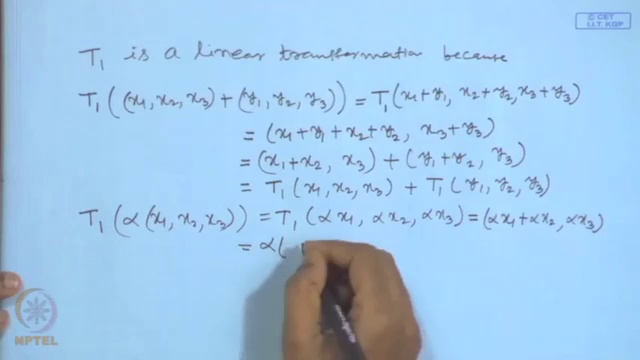 © CET
I.I.T. KGP
T₁ is a linear transformation because
T₁((x₁, x₂, x₃) + (y₁, y₂, y₃)) = T₁(x₁+y₁, x₂+y₂, x₃+y₃)
= (x₁+y₁+x₂+y₂, x₃+y₃)
= (x₁+x₂, x₃) + (y₁+y₂, y₃)
= T₁(x₁, x₂, x₃) + T₁(y₁, y₂, y₃)
T₁(α(x₁, x₂, x₃)) = T₁(αx₁, αx₂, αx₃) = (αx₁+αx₂, αx₃)
= α(
NPTEL